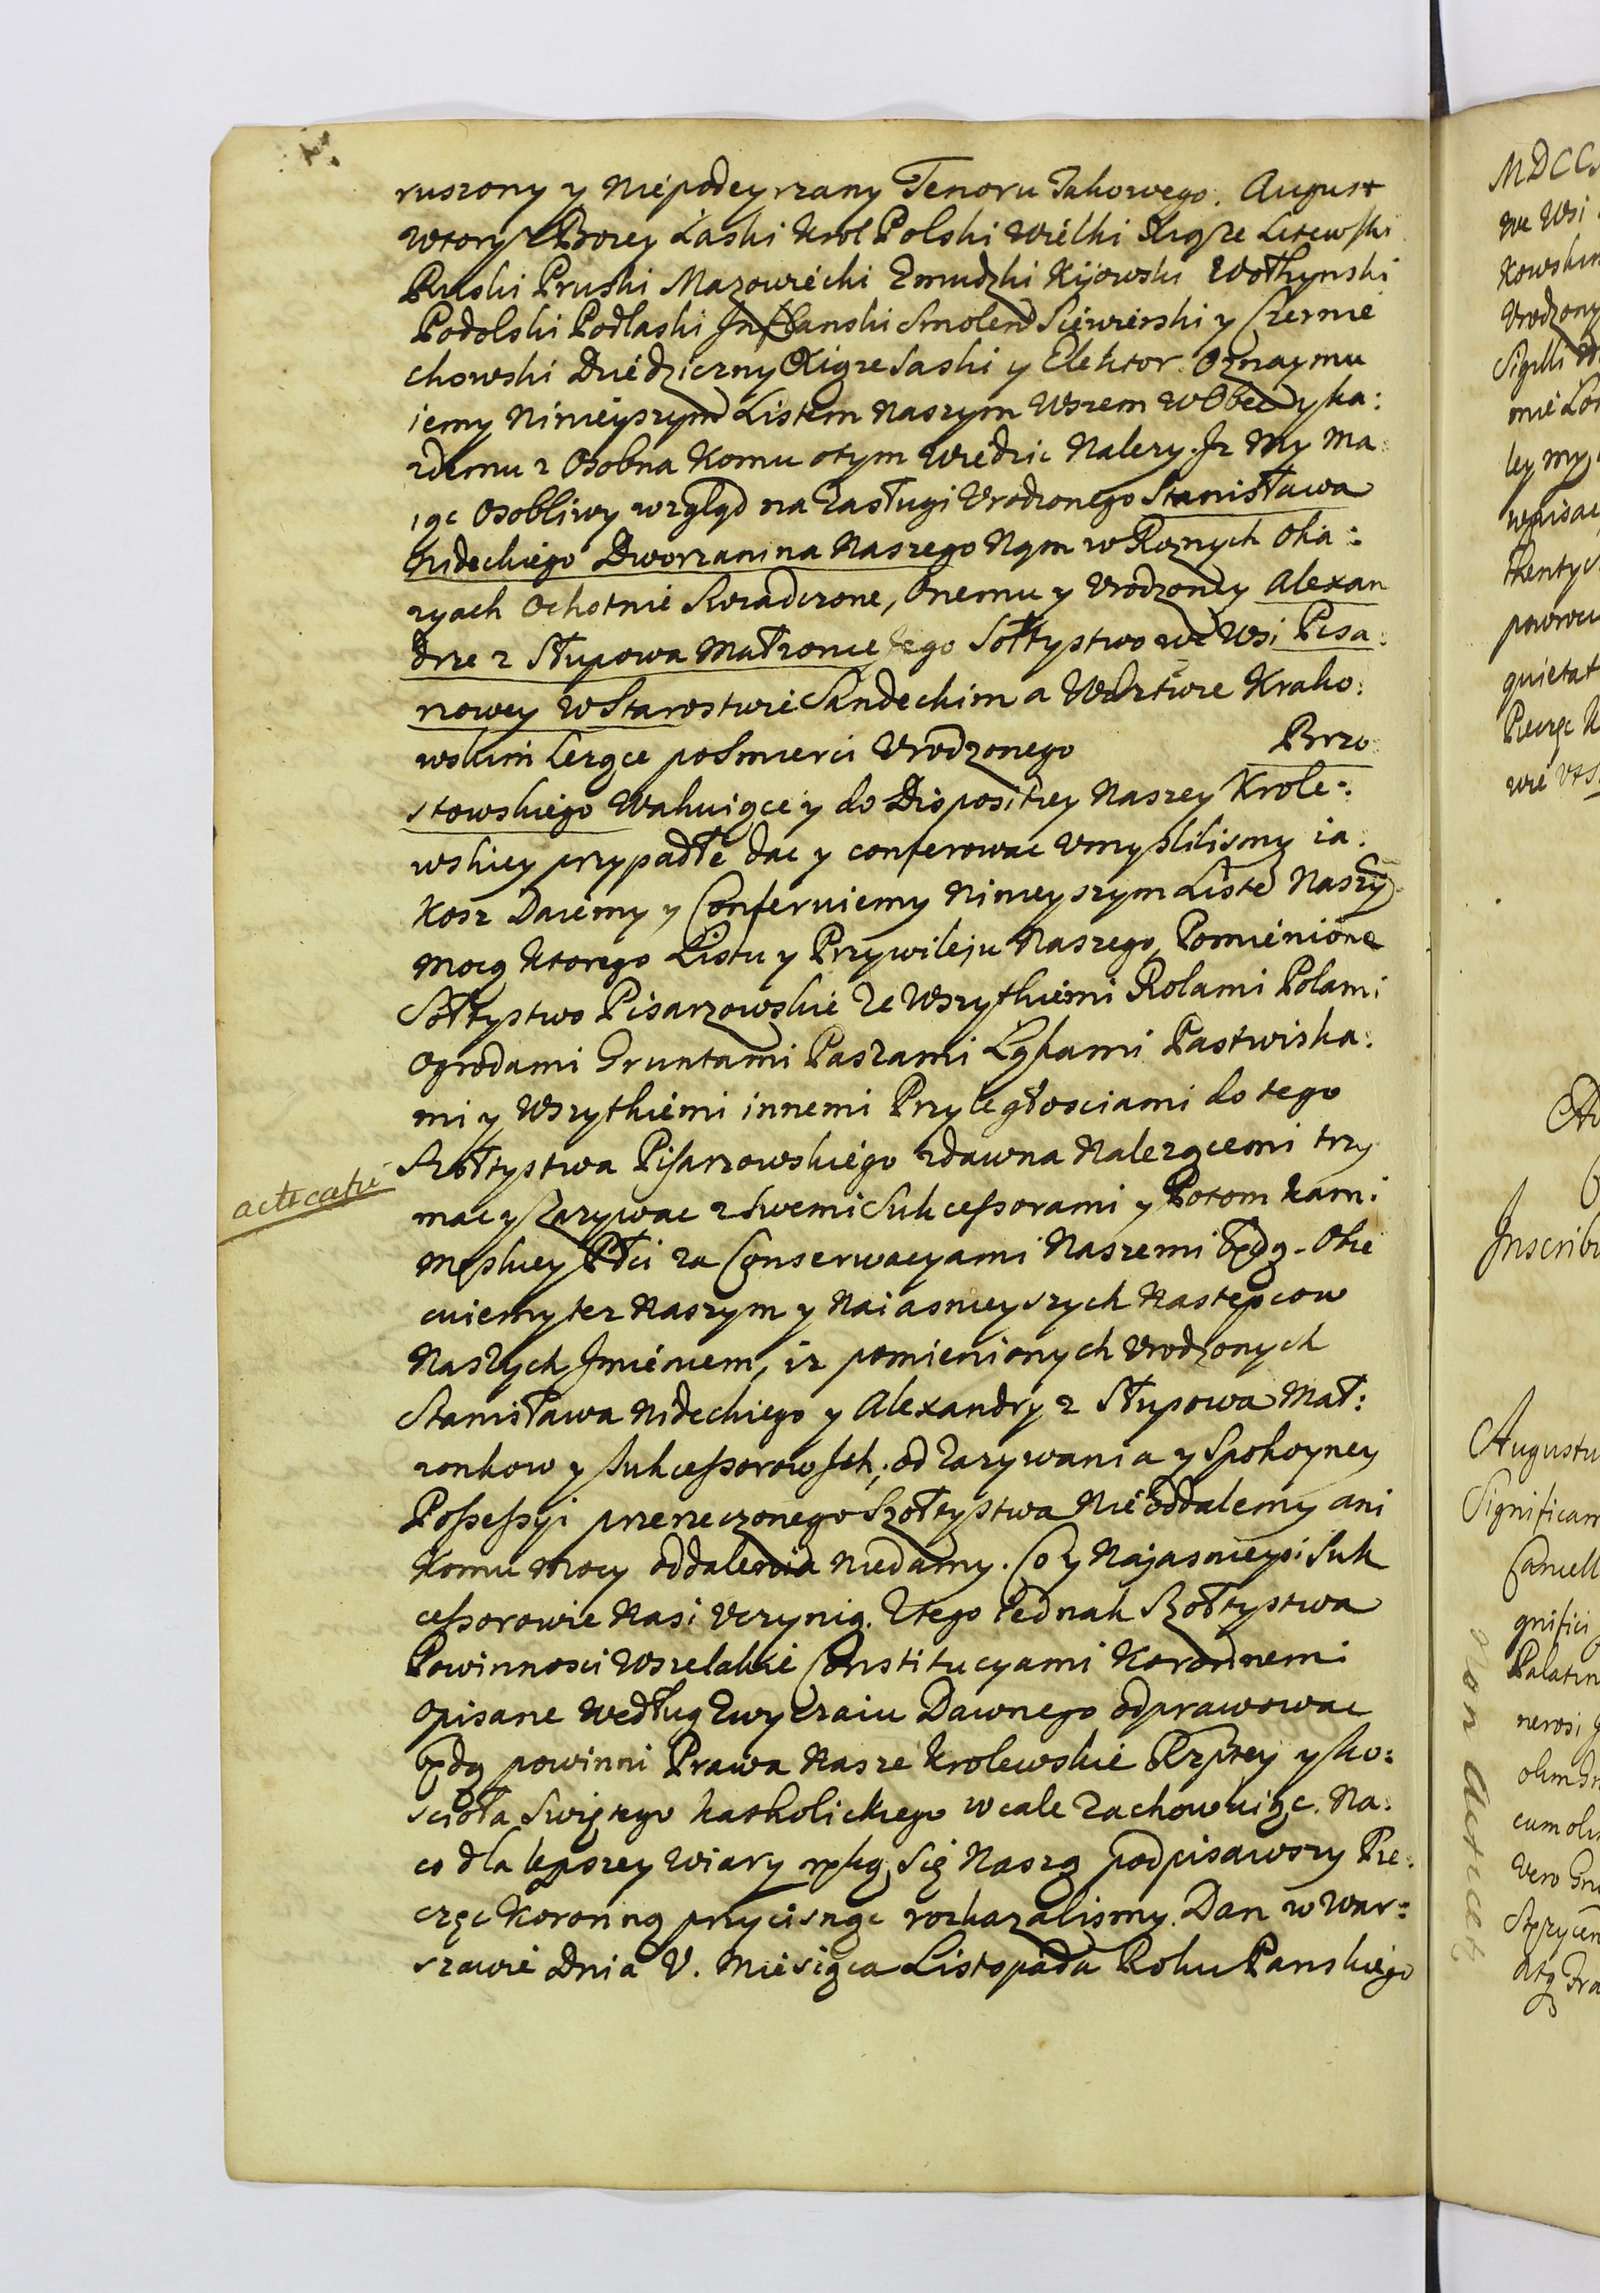 ruszony y Niepodeyrzany Tenoru Takowego. August
Wtory z Bozey Łaski Krol Polski Wielki Xiąze Litewski
Ruski Pruski Mazowiecki Zmudzki Kijowski Wołhynski
Podolski Podlaski Inflanski Smolens Siewierski y Czernie
chowski Dziedziczny Xiąze Saski y Elektor. Oznaymu
iemy Ninieyszym Listem Naszym Wszem wObec y ka:
zdemu z Osobna Komu otym Wiedzic Nalezy. Iz My ma:
iąc Osobliwy wzgląd na Zasługi Urodzonego Stanisława
Nideckiego Dworzanina Naszego Nąm w Roznych Oka:
zyach Ochotnie Swiadczone, Onemu y Urodzoney Alexan
drze z Słupowa Małzonce Jego Sołtystwo we Wsi Pisa:
rzowey w Starostwie Sandeckim a Wdztwie Krako:
wskim lezące posmierci Urodzonego Brzo
stowskiego Wakuiące y do Dispositiey Naszey Krole:
wskiey przypadłe dac y conferowac umyslilismy ia:
kosz Daiemy y Conferuiemy Ninieyszym Liste Naszy
Mocą Ktorego Listu y Przywileju Naszego, Pomienione
Sołtystwo Pisarzowskie Ze Wszytkiemi Rolami Polami
Ogrodami Gruntami Paszami Ląkami Pastwiska:
mi y Wszytkiemi innemi Przyległosciami do tego
Szołtystwa Pisarzowskiego zdawna Nalezącemi trzy
mac y Zazywac z Swemi Sukcessorami y Potomkami
Męskiey Płci za Conserwacyami Naszemi będą. Obie
cuiemy tez Naszym y Naiasnieyszych Następcow
Naszych Imieniem, iz pomienionych Urodzonych
Stanisława Nideckiego y Alexandry z Słupowa Mał:
zonkow y Sukcessorow Ich, od Zazywania y Spokoyney
Possessyi przerzeczonego Szołtystwa Nieoddalemy ani
Komu Mocy oddalenia niedamy. Co y Najasnieysi Suk
cessorowie Nasi Uczynią. Ztego Jednak Szołtystwa
Powinnosci Wszelakie Constitucyami Koronnemi
Opisane Według Zwyczaiu Dawnego odprawowac
będą powinni Prawa Nasze Krolewskie Rzptey y Ko:
scioła Swiętego Katholickiego wcale Zachowuiąc. Na:
co dla lepszey Wiary ręką Się Naszą podpisawszy Pie:
częc Koronną przycisnąc rozkazalismy. Dan w War:
szawie Dnia V. Miesiąca Listopada Roku Panskiego
MDCC
we Wsi
Kowskim
Urodzony
Sigilli
ley my
quietat
Pieczęc
Inscrib
Augustu
Significam
Cancell
gnifici
Palatin
nerosi
cum oli
Vero